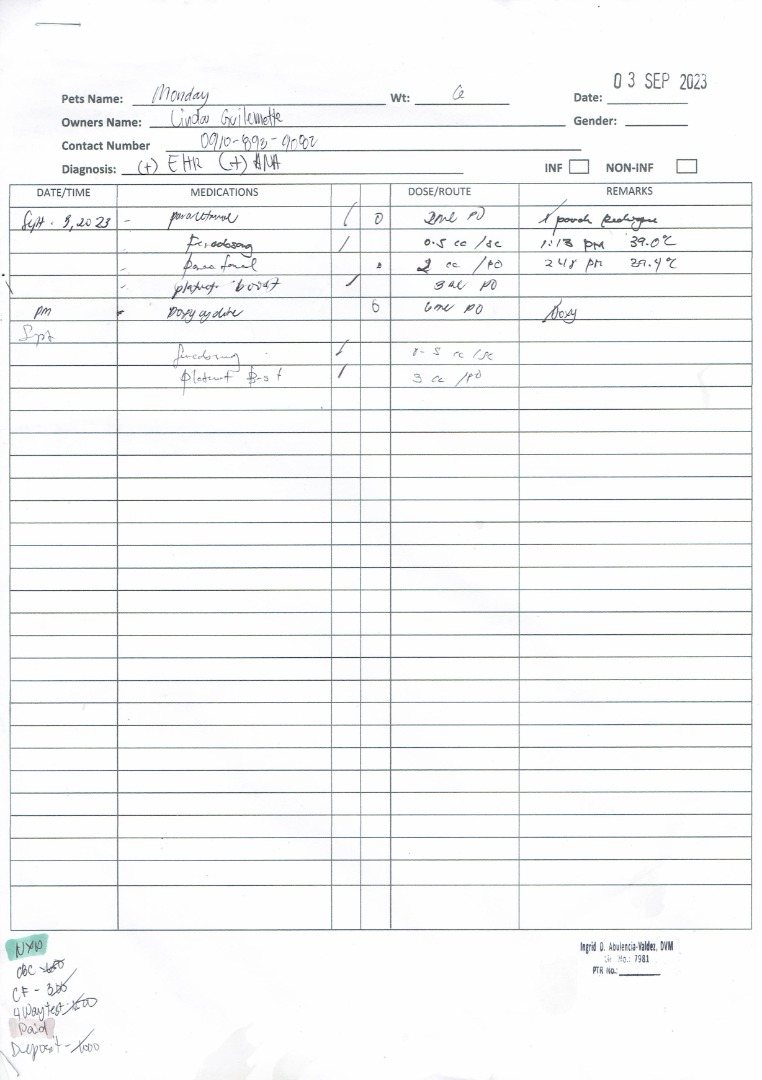 03 SEP 2023
Pets Name: Monday Wt: Date:
Owners Name: Linda Guilemette Gender:
Contact Number 0910-893-9082
Diagnosis: (+) EHR (+) ANA INF NON-INF
DATE/TIME MEDICATIONS DOSE/ROUTE REMARKS
Sept - 3, 2023 - 0 2ml PO 1 pouch
/ 0.5 cc /sc 1:18 pm 39.0°C
- 2 cc /PO 248 pm 39.4°C
- / 3 ml PO
pm - Doxycycline 6 6ml PO Doxy
Spt
/ 0.5 cc /sc
Platent / 3 cc /PO
NXD
CBC
CF - 300
4 Way test
Paid
Deposit - 1000
Ingrid D. Abulencia-Valdez, DVM
Lic No.: 7981
PTR No.: